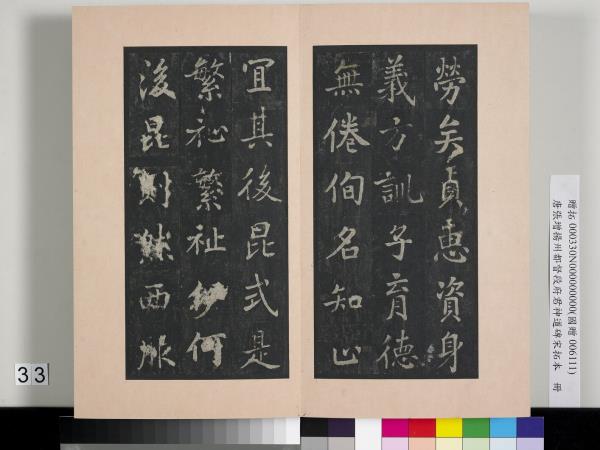 勞矣貞惠資身
義方訓子育德
無倦徇名知止
宜其後昆式是
繁祉繁祉紛何
後昆則然西
贈拓 000330N000000000(國贈 006111)
唐張增揚州都督段府君神道碑宋拓本 冊
33